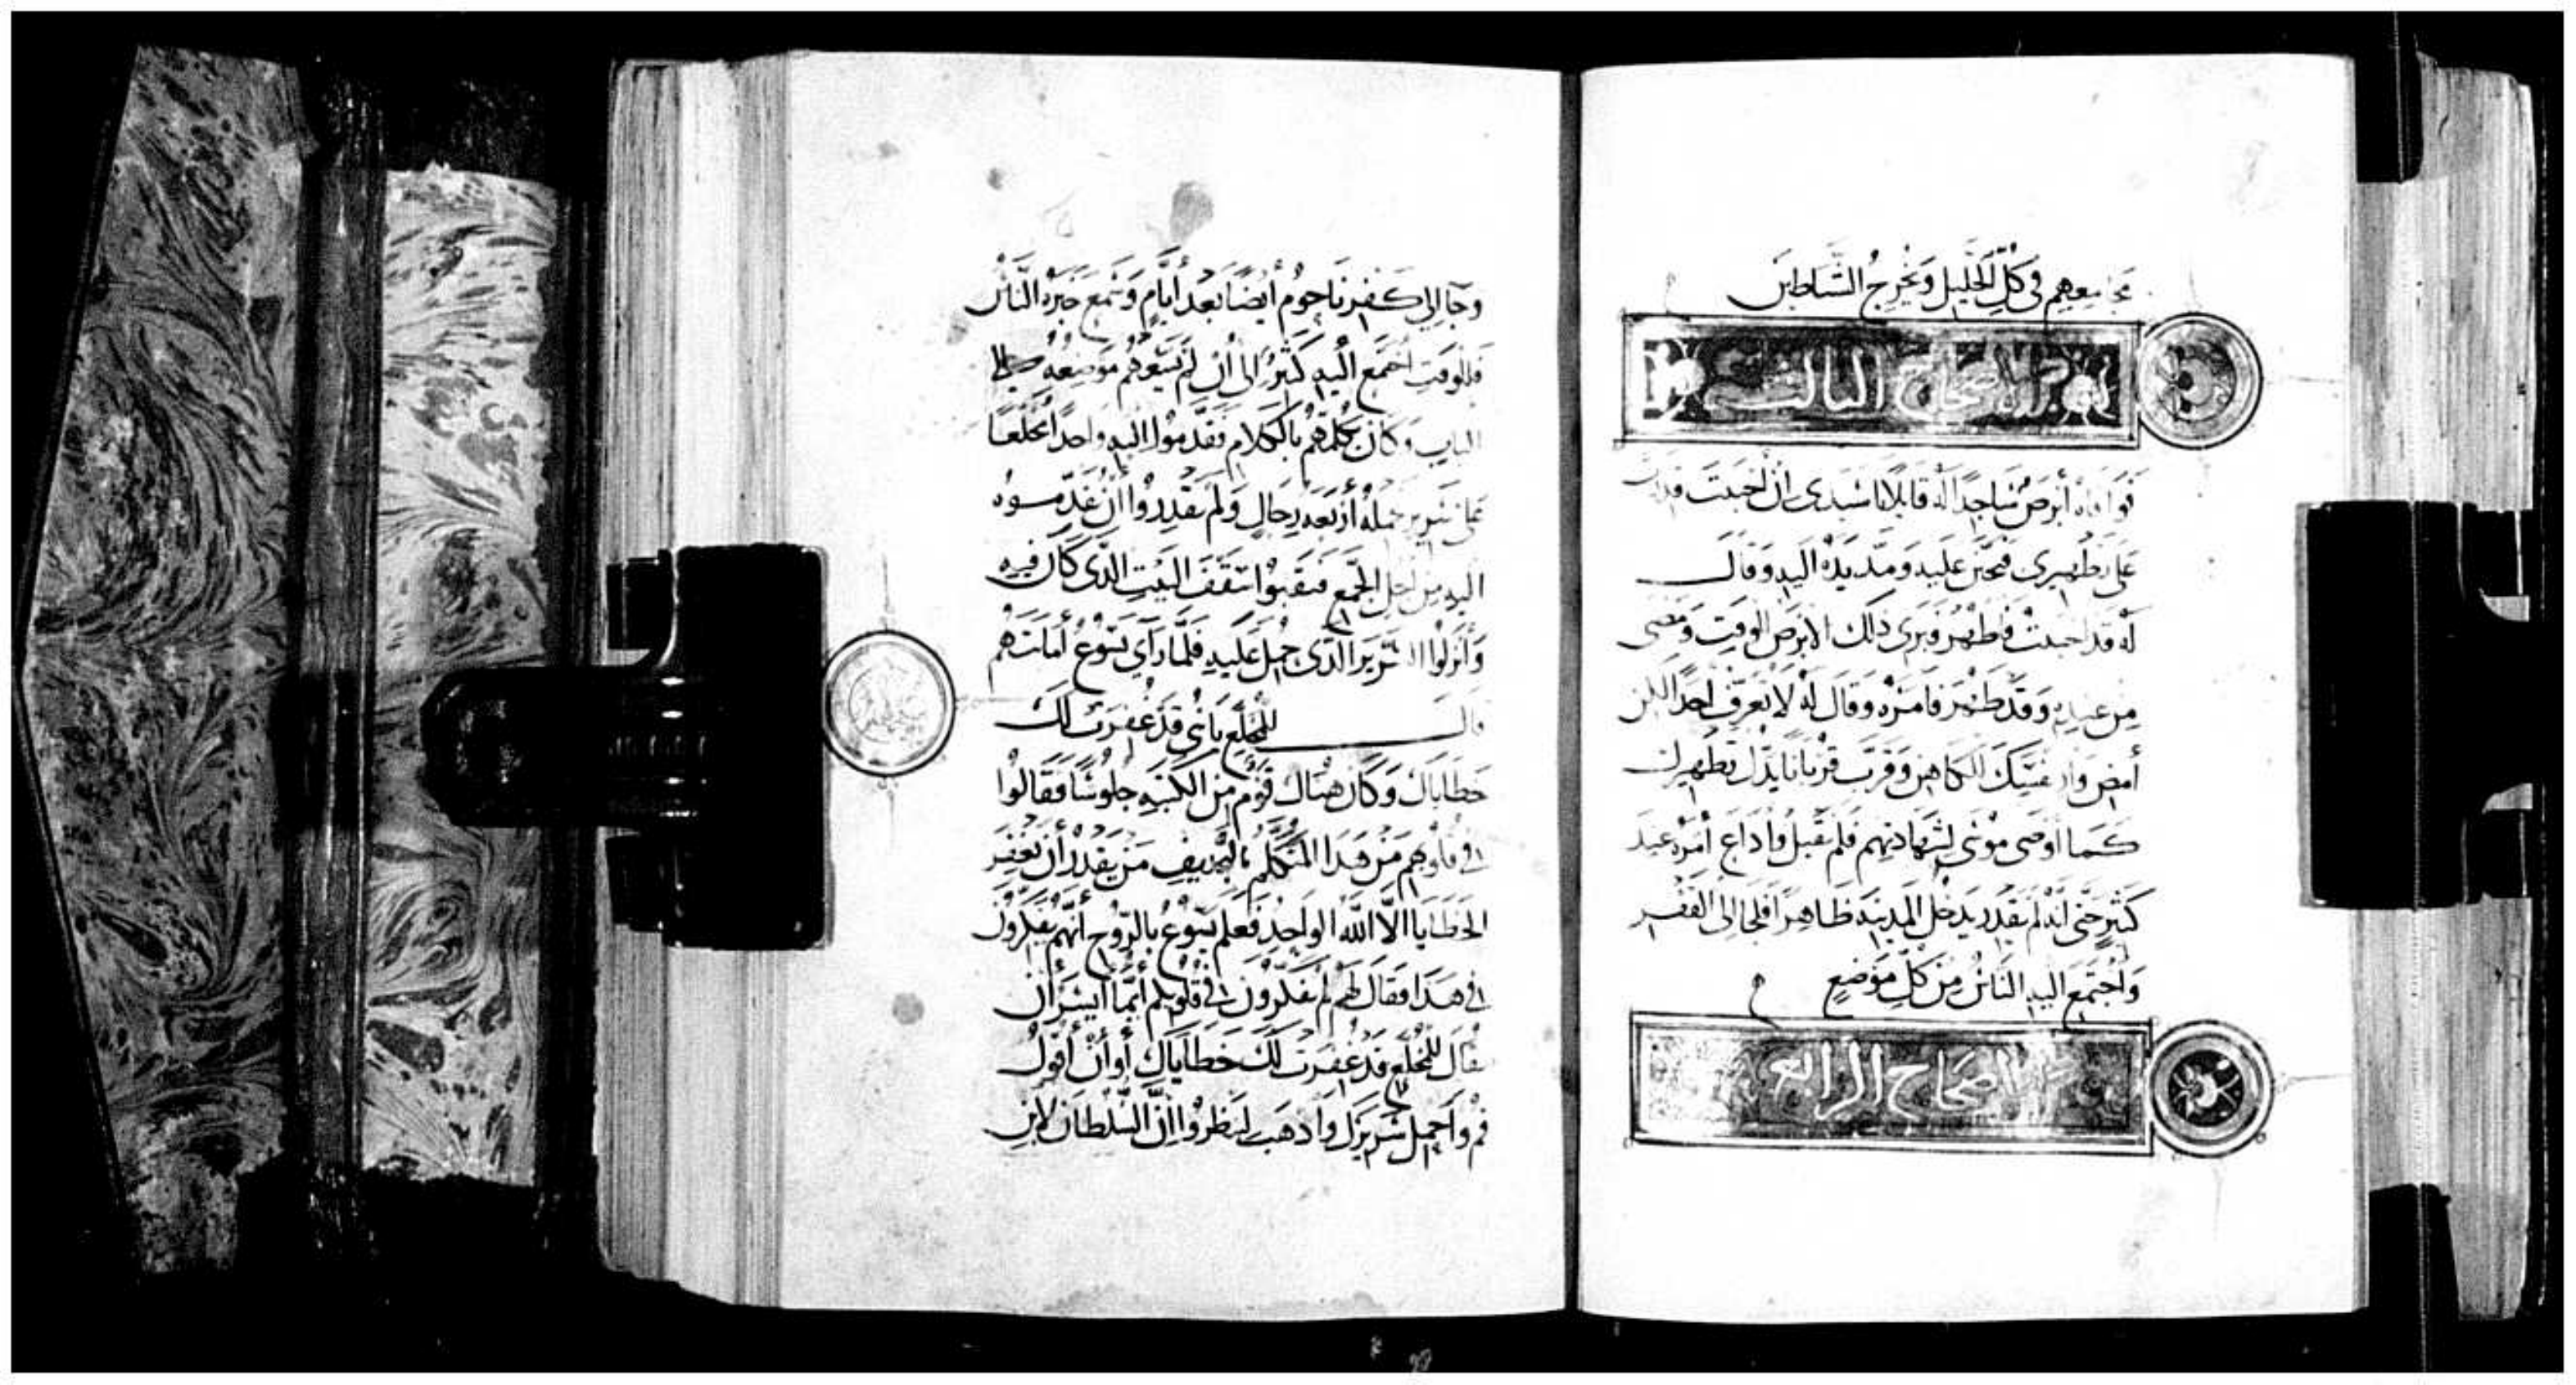 مجامعهم في كل الجليل ويخرج الشياطين
الاصحاح الثالث
فوافاه أبرص ساجدا له قايلا يا سيدي ان احببت
على تطهيري فتحنن عليه ومد يده اليه وقال
له قد احببت فاطهر وبرى ذلك الابرص للوقت ومضى
من عنده وقد طهر فامره وقال له لا تعرف احدا لكن
أمض وار نفسك الكاهن وقرب قربانا بدل تطهيرك
كما أوصى موسى لشهادتهم فلم يقبل وأذاع أمره عند
كثير حتى انه لم يقدر يدخل المدينة ظاهرا فلجا الى القفر
وأجتمع اليه الناس من كل موضع
الاصحاح الرابع
وجا الى كفرناحوم أيضا بعد أيام وسمع خبره الناس
فللوقت اجتمع اليه كثير الى أن لم يسعهم موضعه
الباب وكان يكلمهم بالكلام فقدموا اليه واحدا مخلعا
على سرير حمله أربعة رجال ولم يقدروا أن يقدموه
اليه من اجل الجمع فنقبوا سقف البيت الذي كان فيه
وأنزلوا السرير الذي حمل عليه فلما رأى يسوع أمانتهم
قال للمخلع يا بني قد غفرت لك
خطاياك وكان هناك قوم من الكتبة جلوسا فقالوا
في قلوبهم من هذا المتكلم بالتجديف من يقدر أن يغفر
الخطايا الا الله الواحد فعلم يسوع بالروح أنهم يفكرون
في هذا فقال لهم لم تفكرون في قلوبكم أيما أيسر أن
يقال للمخلع قد غفرت لك خطاياك أو أن أقول
قم وأحمل سريرك وأذهب لتنظروا ان السلطان لابن